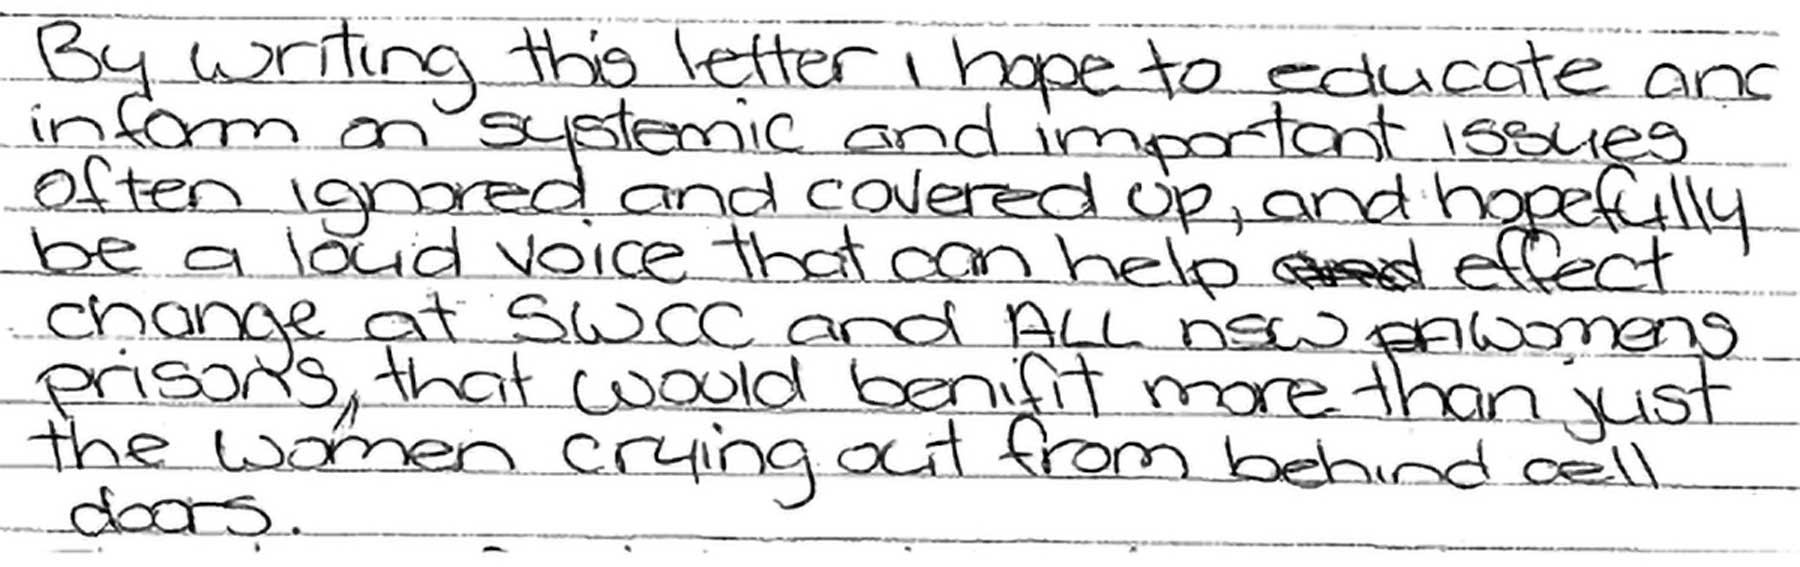 By writing this letter I hope to educate and
inform on systemic and important issues
often ignored and covered up, and hopefully
be a loud voice that can help effect
change at SWCC and ALL NSW womens
prisons, that would benifit more than just
the women crying out from behind cell
doors.